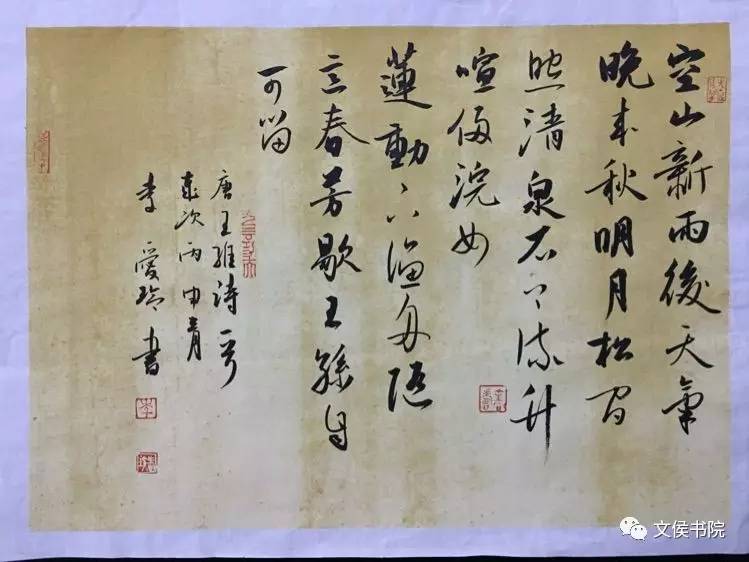 空山新雨後天氣
晚来秋明月松間
照清泉石上流竹
喧歸浣女
蓮動下漁舟随
意春芳歇王孫自
可留
唐王維詩一首
歲次丙申
李愛玲書
文侯书院